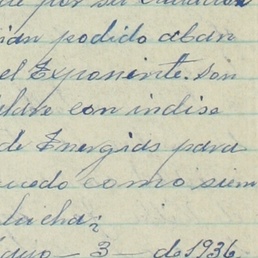 que por su
ian podido aban
el Exponente. Son
con indise
de Energias para
como siem
lucha;
3 - de 1936